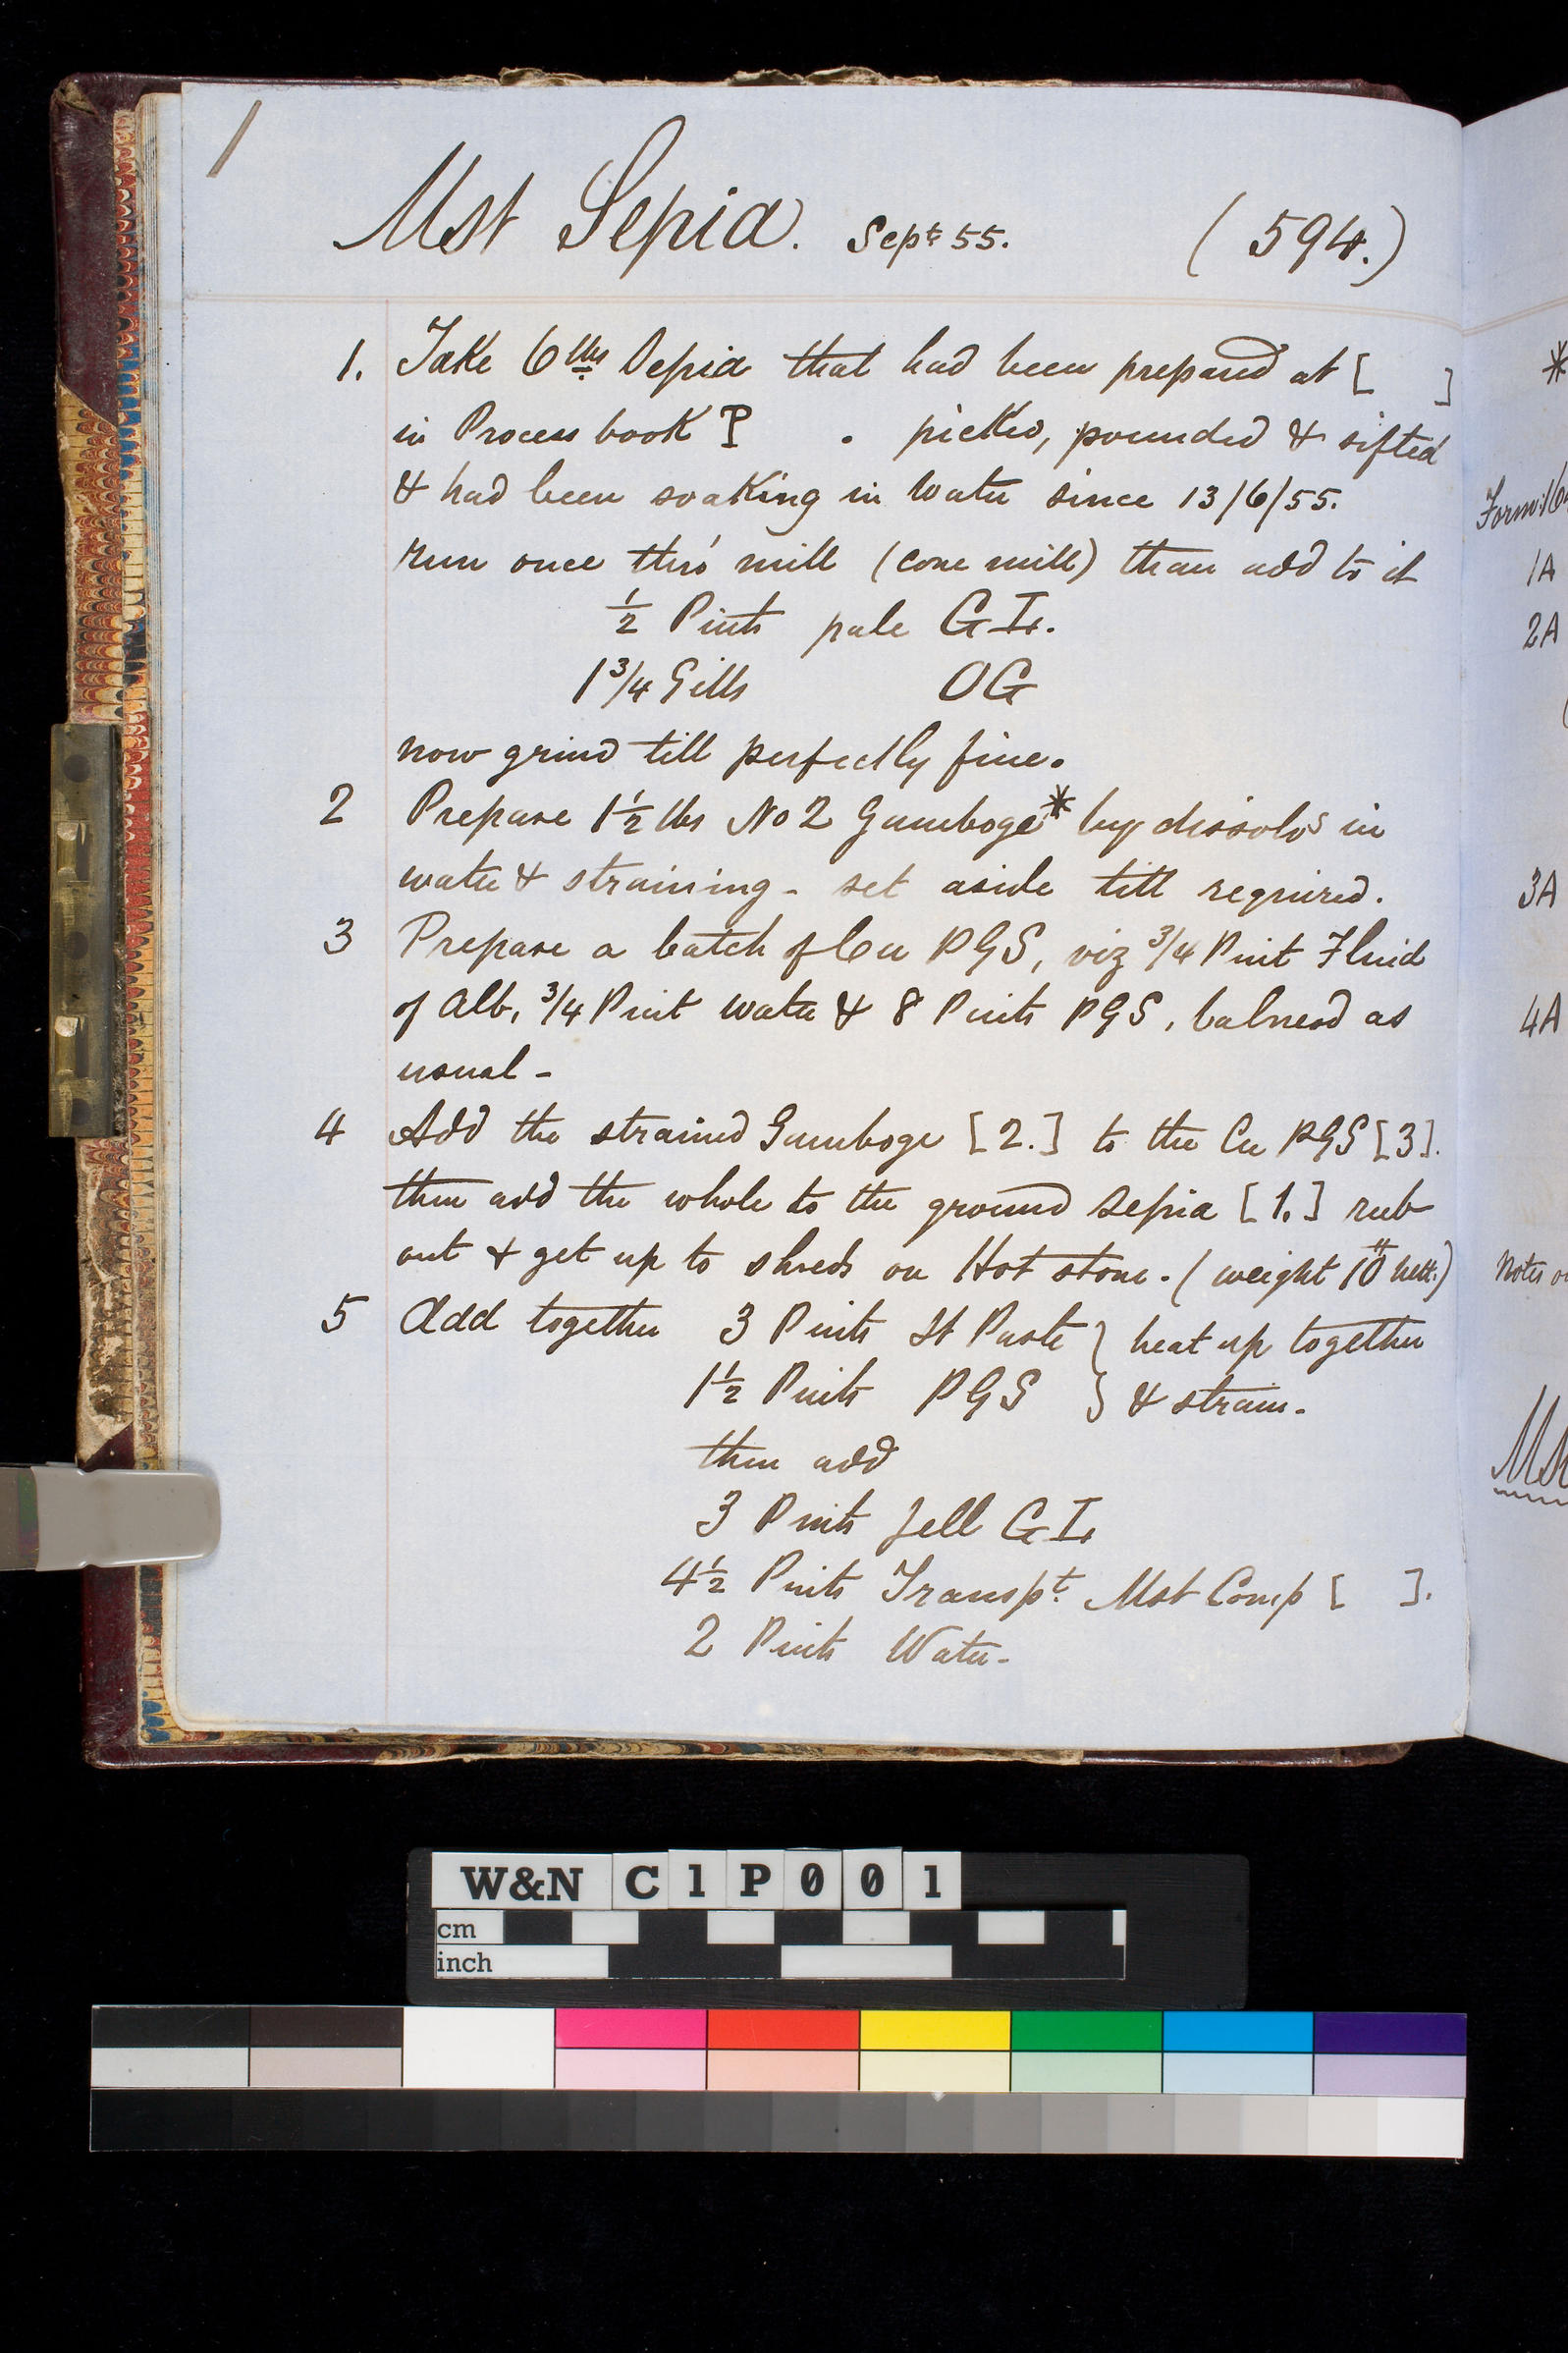 1
Mst Sepia. Sept 55. (594.)
1. Take 6 lbs Sepia that had been prepared at [ ]
in Process book P . picked, pounded & sifted
& had been soaking in Water since 13/6/55.
run once thro' mill (cone mill) than add to it
½ Pints pale GI.
1¾ Gills OG
now grind till perfectly fine.
2 Prepare 1½ lbs No 2 Gamboge* by dissolvg in
water & straining - set aside till required.
3 Prepare a batch of Cu PGS, viz ¾ Pint Fluid
of Alb, ¾ Pint water & 8 Pints PGS, balnead as
usual -
4 Add the strained Gamboge [2.] to the Cu PGS [3].
then add the whole to the ground Sepia [1.] rub
out & get up to shreds on Hot stone. (weight 10# nett.)
5 Add together 3 Pints St Paste } heat up together
1½ Pints PGS } & strain.
then add
3 Pints Jell GI,
4½ Pints Transpt. Mst Comp [ ].
2 Pints Water-
*
1A
2A
3A
4A
Notes
W&N C1P001
cm
inch